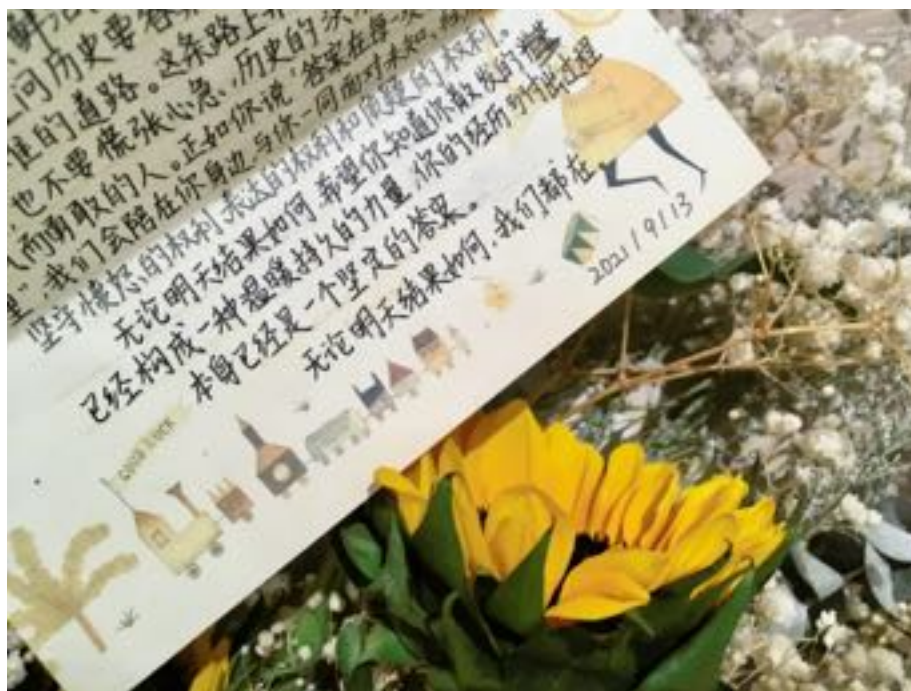 问历史要答
的道路。这条路上
也不要慌张心急,历史的
而勇敢的人。正如你说,答案在每一次
我们会陪在你身边与你一同面对未知,
坚守愤怒的权利,表达的权利和
的权利。
无论明天结果如何,希望你知道你激发的
已经构成一种温暖持久的力量,你的经历
过程
本身已经是一个坚定的答案。
无论明天结果如何,我们都在。
2021/9/13
GOOD LUCK